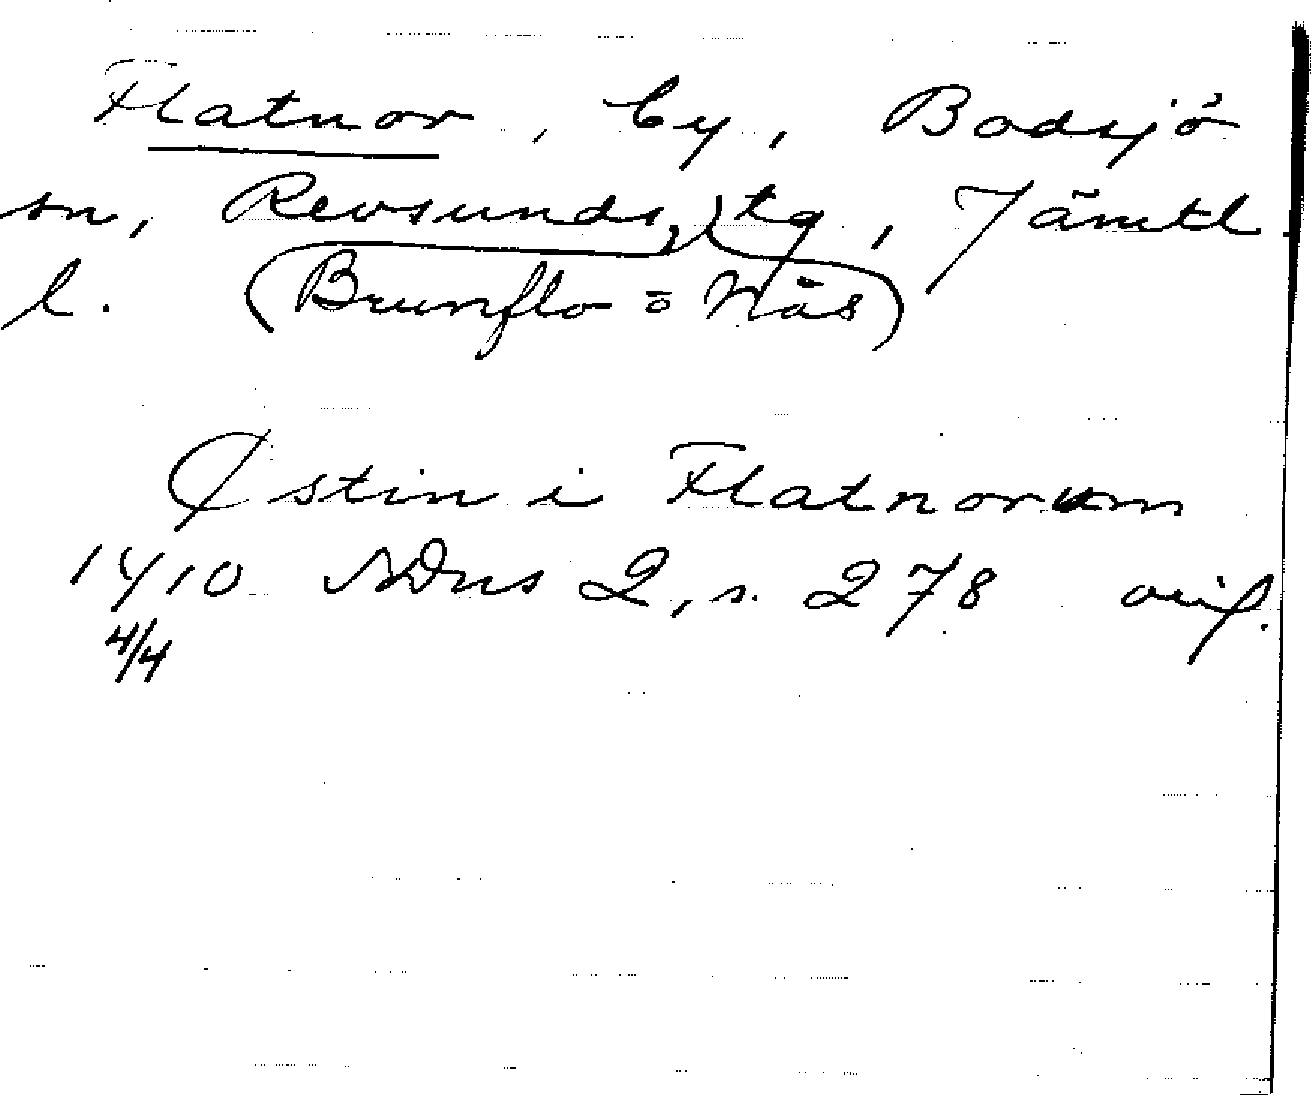 Flatnor, by, Bodsjö
sn, Revsunds tg, Jämtl
l. (Brunflo o Näs)
Østin i Flatnorum
1410 NDns 2, s. 278
4/4